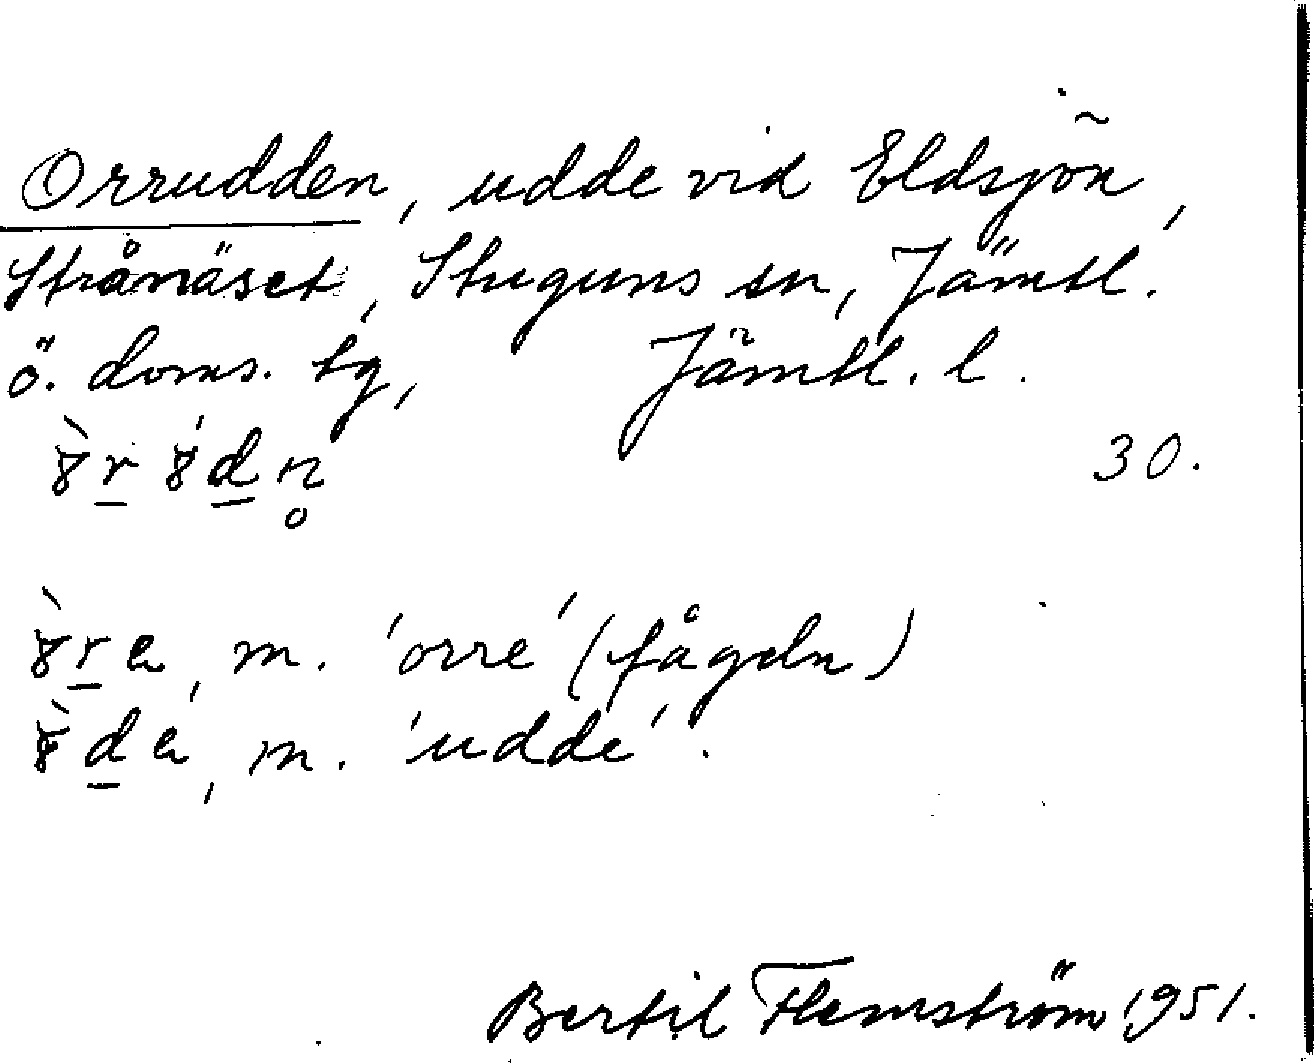 Orrudden, udde vid Eldsjön,
Strånäset, Stuguns sn, Jämtl.
ö. doms. tg, Jämtl. l.
30.
m. 'orre' (fågeln)
m. 'udde'.
Bertil Flemström 1951.